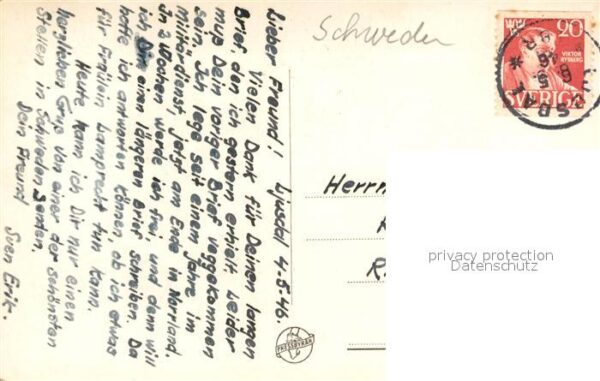 Ljusdal 4-5-46.
Lieber Freund!
Vielen Dank für Deinen langen
Brief, den ich gestern erhielt. Leider
mus Dein voriger Brief weggekommen
sein. Ich lege seit einem Jahre im
Militärdienst, jetzt am Ende in Norrland.
in 2 Wochen werde ich frei, und dann will
ich Dir einen längeren Brief schreiben. Da
hoffe ich antworten können, ob ich etwas
für Fräulein Lamprecht tun kann.
Heute kann ich Dir nur einen
herzlichen Gruß von einer der schönsten
Stellen in Schweden senden.
Dein Freund
Sven Erik.
Schweden
20
VIKTOR
RYDBERG
SVERIGE
Herrn
R.
privacy protection
Datenschutz
PRESSBYRÅN